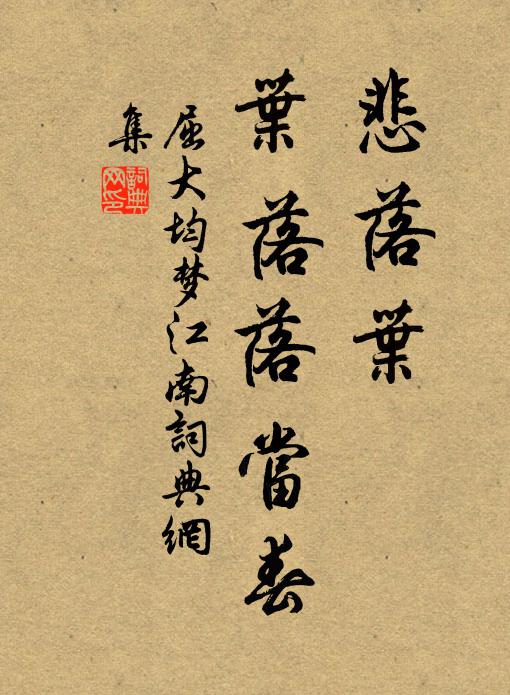 悲落葉
葉落落當春
屈大均梦江南詞典網
集
詞典网印